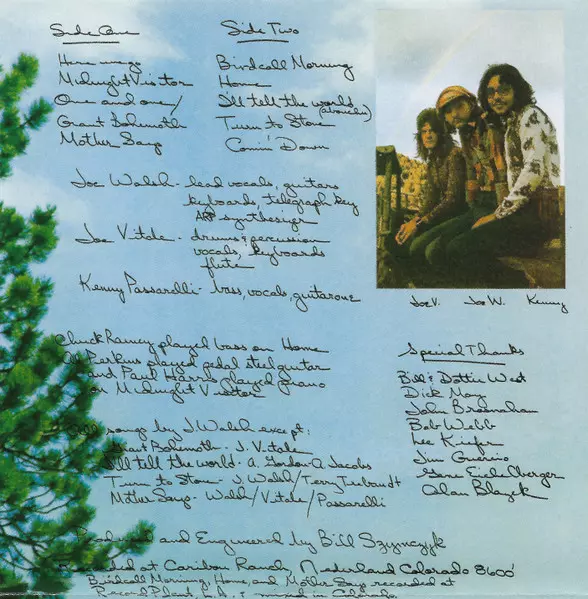 Side One
Here we go
Midnight Visitor
One and one /
Giant Bohemoth
Mother Says
Side Two
Birdcall Morning
Home
I'll tell the world
Turn to Stone
Comin' Down
Joe Walsh - lead vocals, guitars
keyboards, telegraph key
ARP synthesizer
Joe Vitale - drums & percussion
vocals, keyboards
flute
Kenny Passarelli - bass, vocals, guitarone
Joe V. Joe W. Kenny
Chuck Rainey played bass on Home
Al Perkins played pedal steel guitar
and Paul Harris played piano
on Midnight Visitor
All songs by J Walsh except:
Giant Bohemoth - J. Vitale
I'll tell the world - A. Gordon A Jacobs
Turn to Stone - J Walsh / Terry Trebandt
Mother Says - Walsh / Vitale / Passarelli
Special Thanks
Bill & Dottie West
Dick May
John Brosnahan
Bob Webb
Lee Kiefer
Jim Guercio
Gene Eichelberger
Alan Blazek
Produced and Engineered by Bill Szymczyk
Recorded at Caribou Ranch, Nederland Colorado 8600'
Birdcall Morning, Home, and Mother Says recorded at
Record Plant, L.A., & mixed in Colorado.